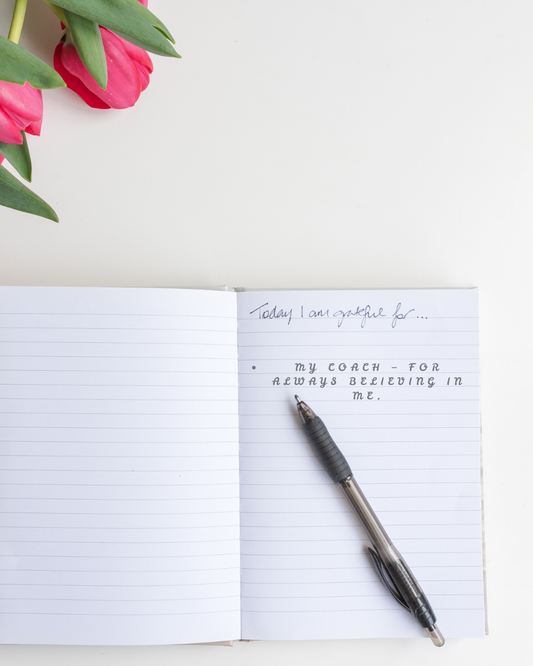 Today I am grateful for...
• MY COACH - FOR
ALWAYS BELIEVING IN
ME.